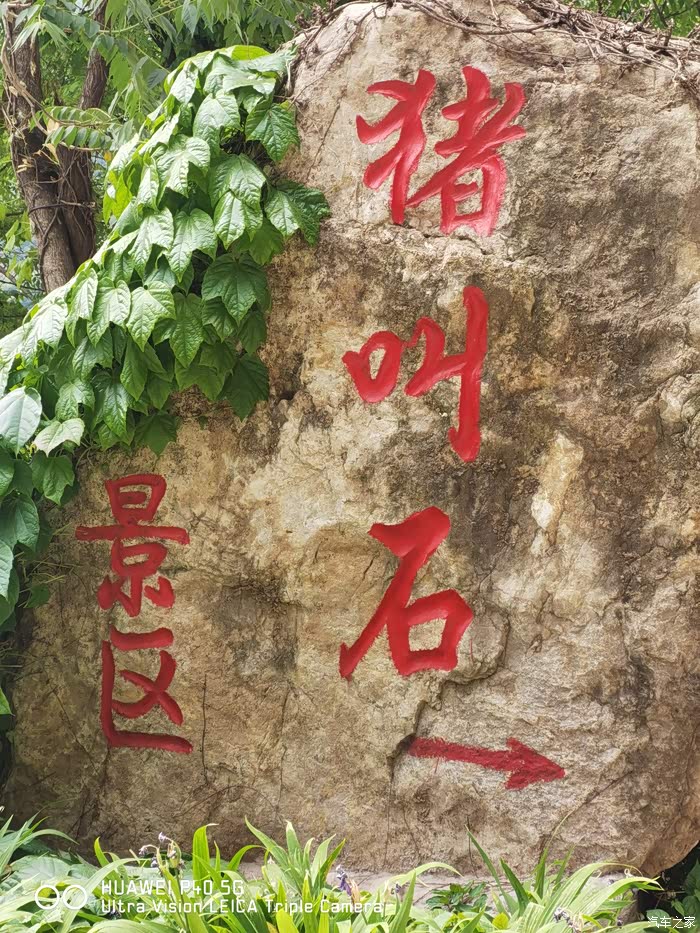 猪叫石
景区
HUAWEI P40 5G
Ultra Vision LEICA Triple Camera
汽车之家